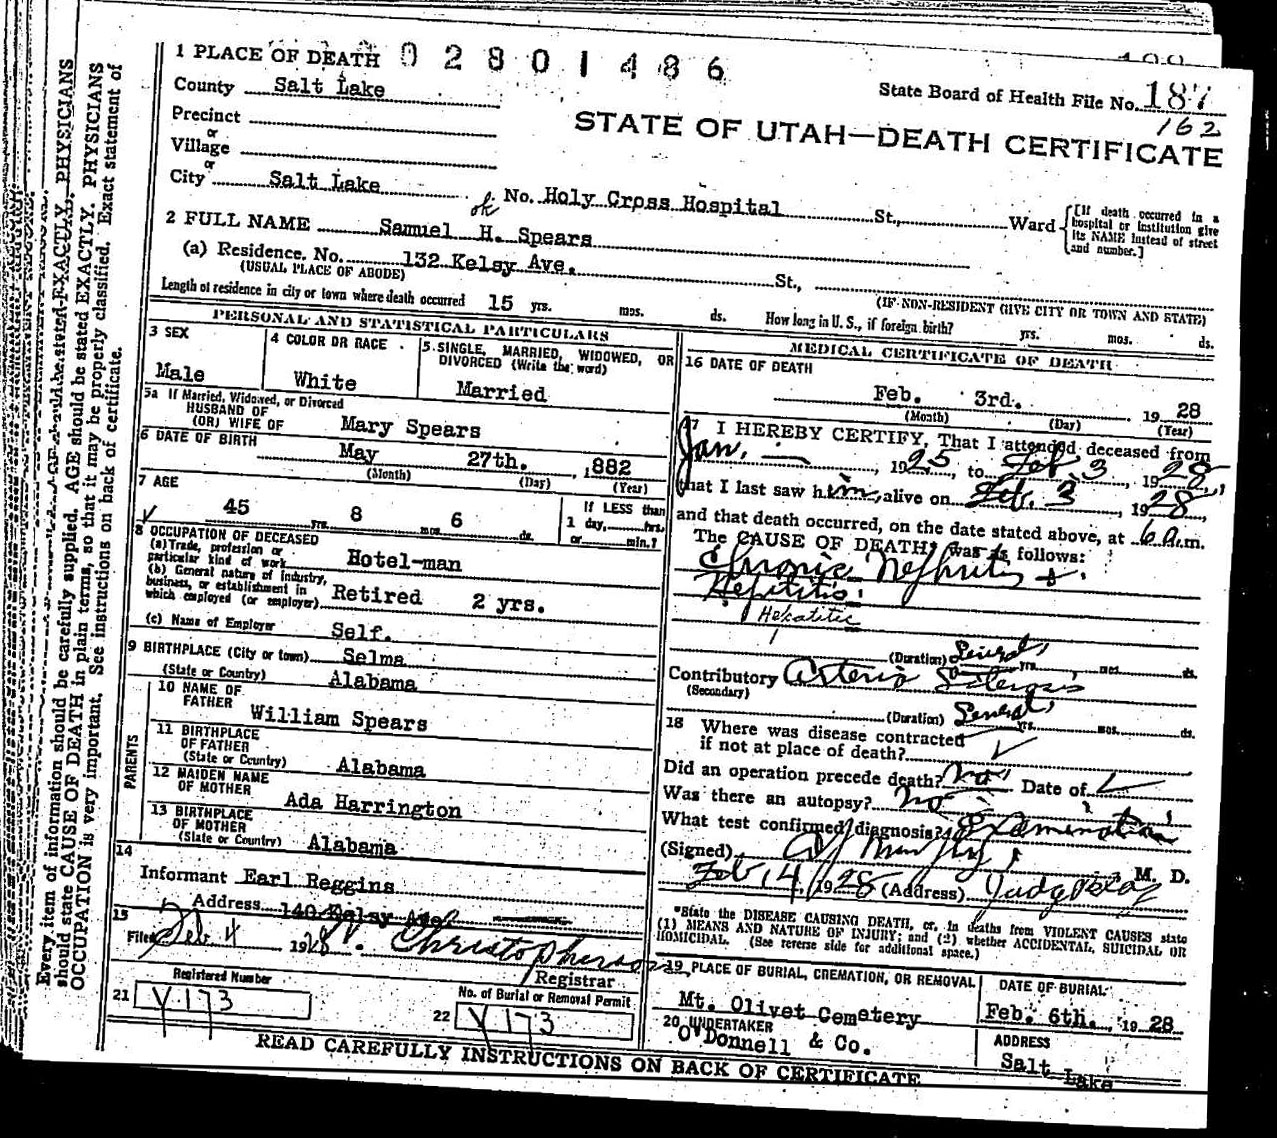 1 PLACE OF DEATH 02801486
County Salt Lake
State Board of Health File No. 187
162
Precinct
or
Village
or
City Salt Lake
STATE OF UTAH—DEATH CERTIFICATE
ok No. Holy Cross Hospital St., Ward
[If death occurred in a hospital or institution give its NAME instead of street and number.]
2 FULL NAME Samuel H. Spears
(a) Residence. No. 132 Kelsy Ave. St.,
(USUAL PLACE OF ABODE)
(IF NON-RESIDENT GIVE CITY OR TOWN AND STATE)
Length of residence in city or town where death occurred 15 yrs. mos. ds. How long in U. S., if foreign birth? yrs. mos. ds.
PERSONAL AND STATISTICAL PARTICULARS
3 SEX
Male
4 COLOR OR RACE
White
5 SINGLE, MARRIED, WIDOWED, OR
DIVORCED (Write the word)
Married
5a If Married, Widowed, or Divorced
HUSBAND OF
(OR) WIFE OF Mary Spears
6 DATE OF BIRTH
May 27th. ,882
(Month) (Day) (Year)
7 AGE
45 yrs. 8 mos. 6 ds.
If LESS than
1 day,......hrs.
or......min.?
8 OCCUPATION OF DECEASED
(a) Trade, profession or
particular kind of work Hotel-man
(b) General nature of industry,
business, or establishment in
which employed (or employer) Retired 2 yrs.
(c) Name of Employer Self.
9 BIRTHPLACE (City or town) Selma
(State or Country) Alabama
PARENTS
10 NAME OF
FATHER William Spears
11 BIRTHPLACE
OF FATHER
(State or Country) Alabama
12 MAIDEN NAME
OF MOTHER Ada Harrington
13 BIRTHPLACE
OF MOTHER
(State or Country) Alabama
14
Informant Earl Reggins
Address 140 Kelsy Ave.
15
Filed Feb. 4 1928 Christopherson
Registrar
Registered Number
21 V 173
No. of Burial or Removal Permit
22 V 173
MEDICAL CERTIFICATE OF DEATH
16 DATE OF DEATH
Feb. 3rd. 1928
(Month) (Day) (Year)
17 I HEREBY CERTIFY, That I attended deceased from
Jan. — , 1925, to Feb 3, 1928,
that I last saw him alive on Feb. 3, 1928,
and that death occurred, on the date stated above, at 6 a.m.
The CAUSE OF DEATH* was as follows:
Chronic Nephritis +
Hepititis
Hepatitic
(Duration) Several yrs. mos. ds.
Contributory Arterio Sclerosis
(Secondary)
(Duration) Several yrs. mos. ds.
18 Where was disease contracted
if not at place of death?
Did an operation precede death? No Date of
Was there an autopsy? No
What test confirmed diagnosis? Examination
(Signed) Murphy, M. D.
Feb, 4, 1928 (Address) Judge Bldg
*State the DISEASE CAUSING DEATH, or, in deaths from VIOLENT CAUSES state
(1) MEANS AND NATURE OF INJURY; and (2) whether ACCIDENTAL, SUICIDAL OR
HOMICIDAL. (See reverse side for additional space.)
19 PLACE OF BURIAL, CREMATION, OR REMOVAL
Mt. Olivet Cemetery
DATE OF BURIAL
Feb. 6th. , 1928
20 UNDERTAKER
O'Donnell & Co.
ADDRESS
Salt Lake
READ CAREFULLY INSTRUCTIONS ON BACK OF CERTIFICATE
Every item of information should be carefully supplied. AGE should be stated EXACTLY. PHYSICIANS
should state CAUSE OF DEATH in plain terms, so that it may be properly classified. Exact statement of
OCCUPATION is very important. See instructions on back of certificate.